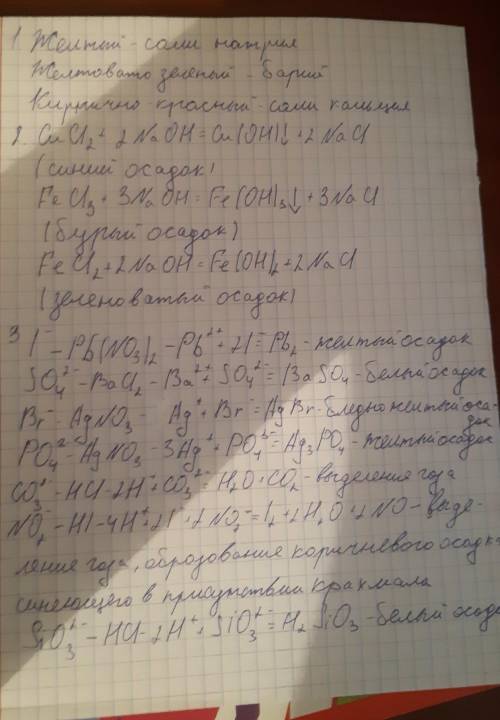 1. Желтый - соли натрия
Желтовато зеленый - барий
Кирпично-красный - соли кальция
2. CuCl₂ + 2NaOH = Cu(OH)↓ + 2NaCl
(синий осадок)
FeCl₃ + 3NaOH = Fe(OH)₃↓ + 3NaCl
(бурый осадок)
FeCl₂ + 2NaOH = Fe(OH)₂ + 2NaCl
(зеленоватый осадок)
3 I⁻ - Pb(NO₃)₂ - Pb²⁺ + 2I⁻ = PbI₂ - желтый осадок
SO₄²⁻ - BaCl₂ - Ba²⁺ + SO₄²⁻ = BaSO₄ - белый осадок
Br⁻ - AgNO₃ - Ag⁺ + Br⁻ = AgBr - бледно желтый оса-
док
PO₄ - AgNO₃ - 3Ag⁺ + PO₄³⁻ = Ag₃PO₄ - желтый осадок
CO₃²⁻ - HCl - 2H⁺ + CO₃²⁻ = H₂O + CO₂ - выделения газа
NO₂⁻ - HI - 4H⁺ + 2I⁻ + 2NO₂⁻ = I₂ + 2H₂O + 2NO - выде-
ление газа, образование коричневого осадка
синеющего в присутствии крахмала
SiO₃²⁻ - HCl - 2H⁺ + SiO₃²⁻ = H₂SiO₃ - белый осад